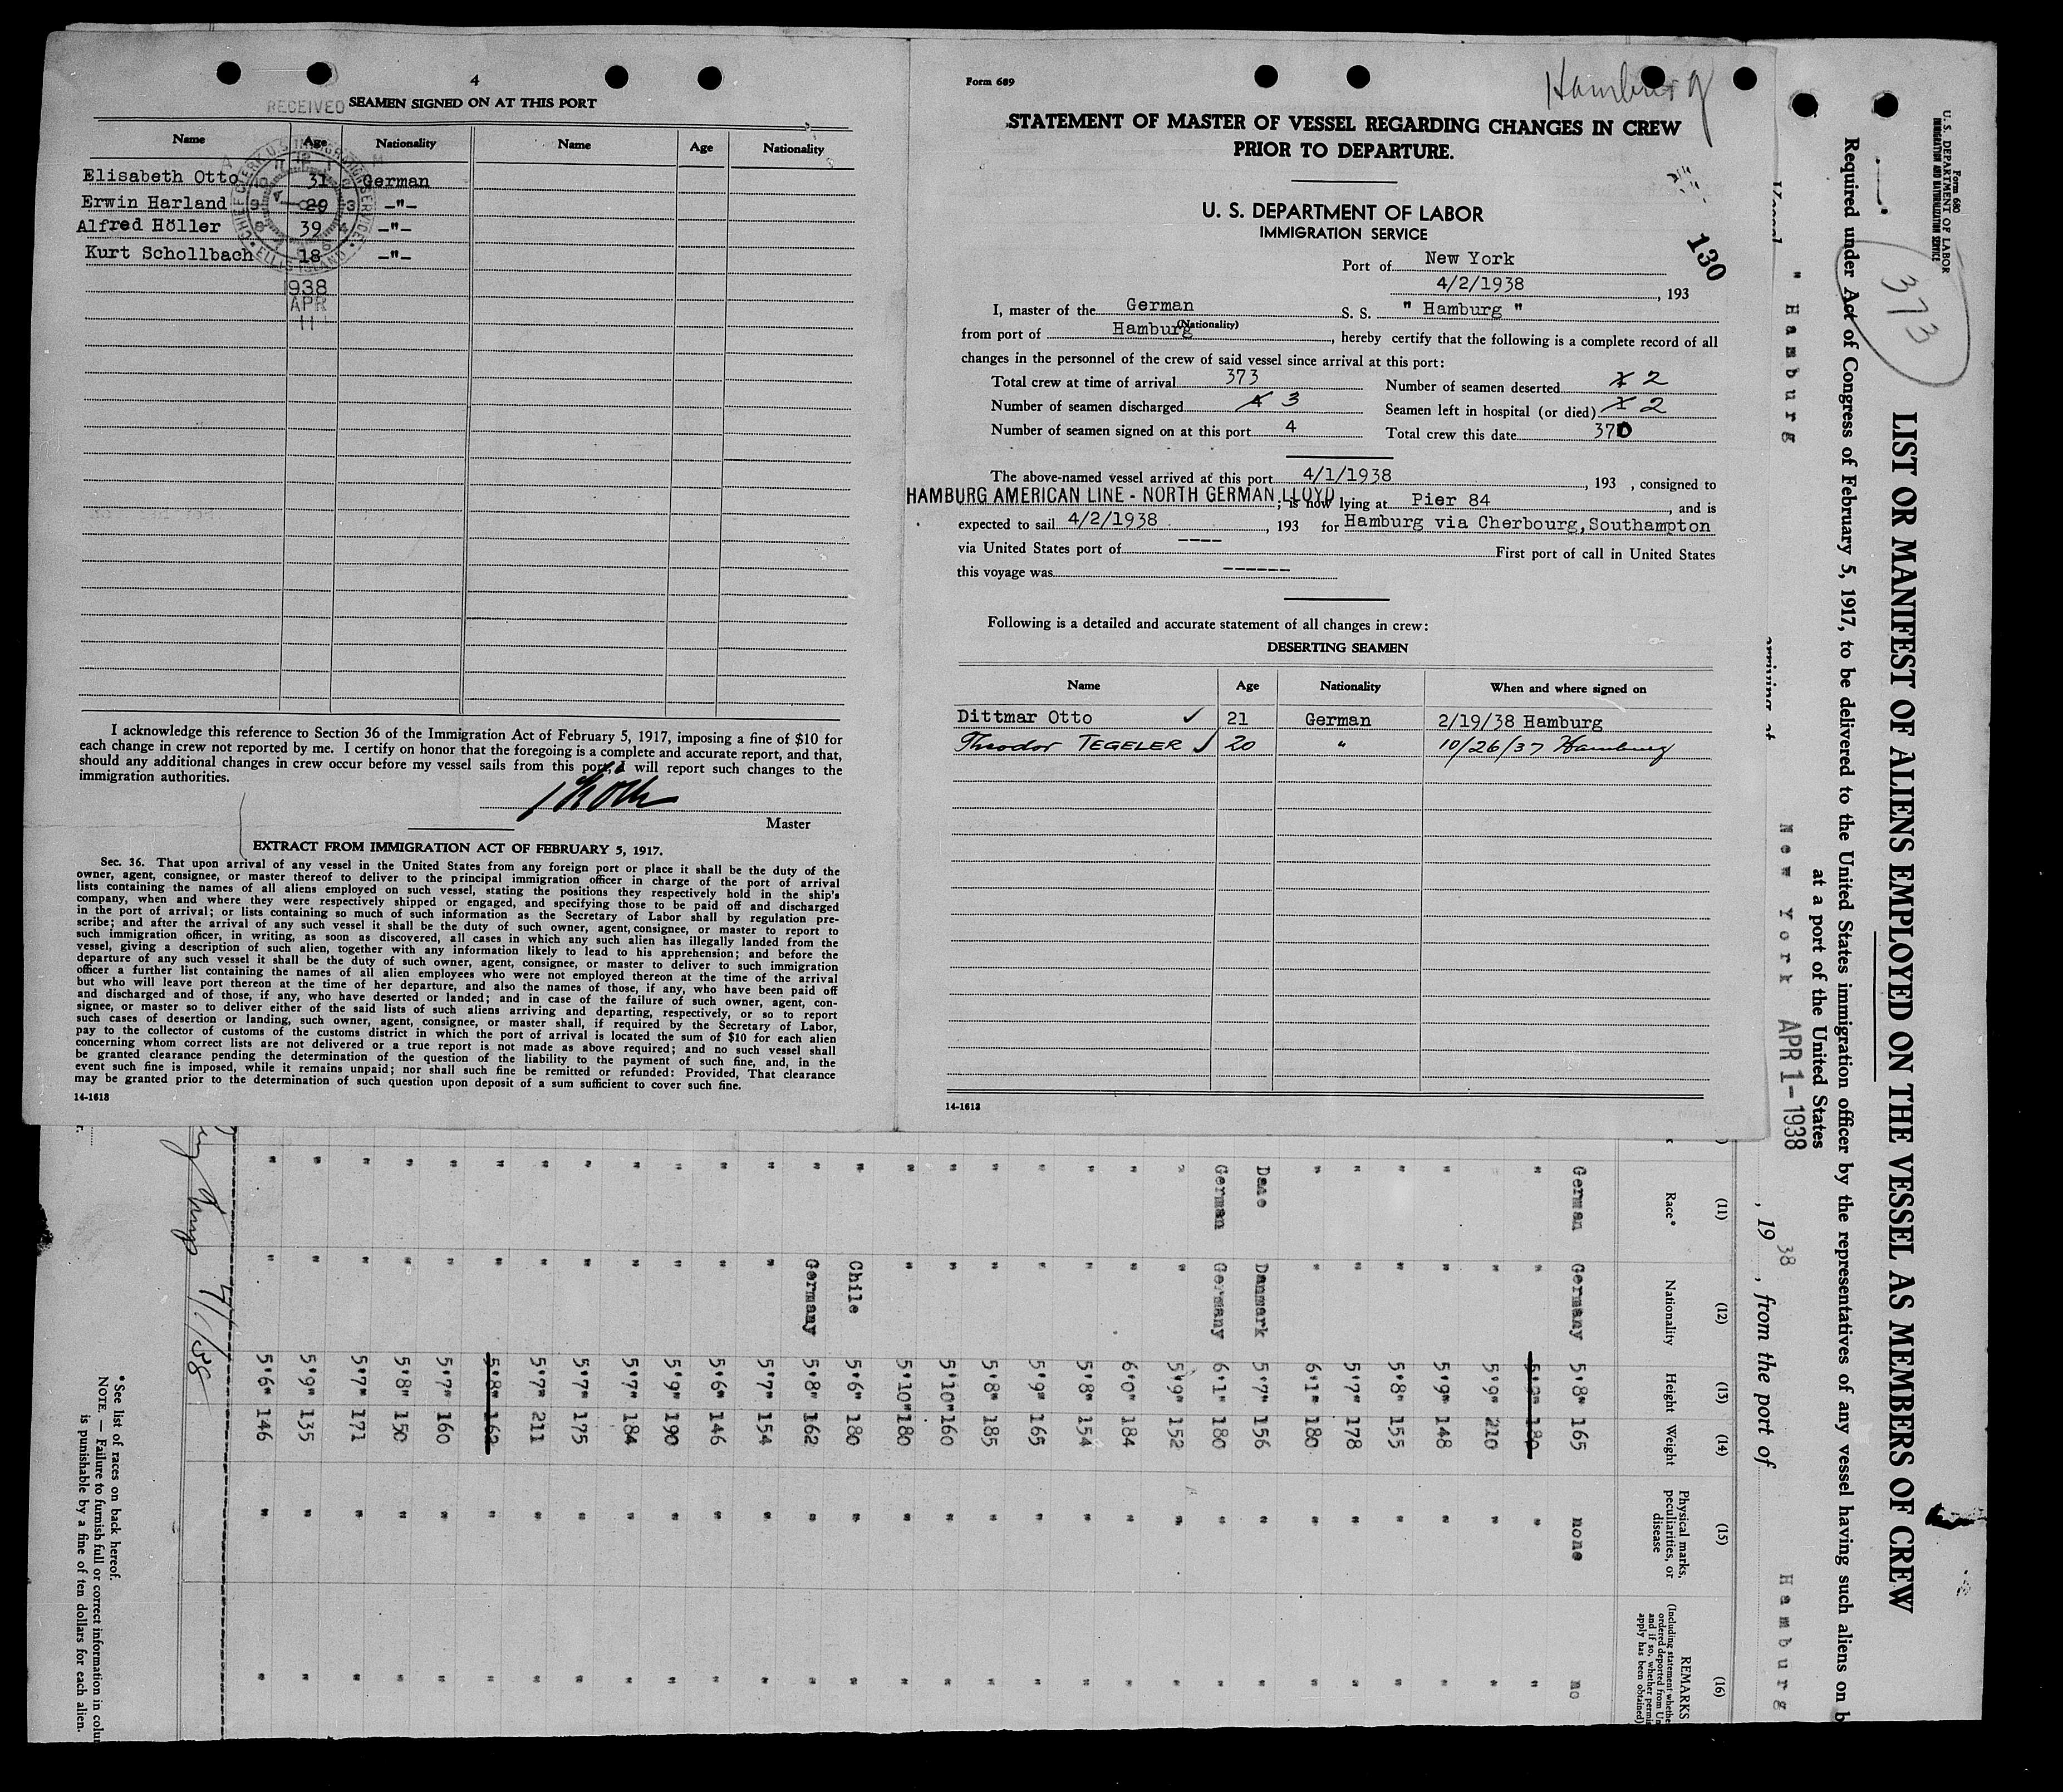 4
RECEIVED
SEAMEN SIGNED ON AT THIS PORT
Name Age Nationality Name Age Nationality
Elisabeth Otto 31 German
Erwin Harland 29 -"-
Alfred Höller 39 -"-
Kurt Schollbach 18 -"-
1938
APR
11
I acknowledge this reference to Section 36 of the Immigration Act of February 5, 1917, imposing a fine of $10 for
each change in crew not reported by me. I certify on honor that the foregoing is a complete and accurate report, and that,
should any additional changes in crew occur before my vessel sails from this port, I will report such changes to the
immigration authorities.
Master
EXTRACT FROM IMMIGRATION ACT OF FEBRUARY 5, 1917.
Sec. 36. That upon arrival of any vessel in the United States from any foreign port or place it shall be the duty of the
owner, agent, consignee, or master thereof to deliver to the principal immigration officer in charge of the port of arrival
lists containing the names of all aliens employed on such vessel, stating the positions they respectively hold in the ship's
company, when and where they were respectively shipped or engaged, and specifying those to be paid off and discharged
in the port of arrival; or lists containing so much of such information as the Secretary of Labor shall by regulation pre-
scribe; and after the arrival of any such vessel it shall be the duty of such owner, agent, consignee, or master to report to
such immigration officer, in writing, as soon as discovered, all cases in which any such alien has illegally landed from the
vessel, giving a description of such alien, together with any information likely to lead to his apprehension; and before the
departure of any such vessel it shall be the duty of such owner, agent, consignee, or master to deliver to such immigration
officer a further list containing the names of all alien employees who were not employed thereon at the time of the arrival
but who will leave port thereon at the time of her departure, and also the names of those, if any, who have been paid off
and discharged and of those, if any, who have deserted or landed; and in case of the failure of such owner, agent, con-
signee, or master so to deliver either of the said lists of such aliens arriving and departing, respectively, or so to report
such cases of desertion or landing, such owner, agent, consignee, or master shall, if required by the Secretary of Labor,
pay to the collector of customs of the customs district in which the port of arrival is located the sum of $10 for each alien
concerning whom correct lists are not delivered or a true report is not made as above required; and no such vessel shall
be granted clearance pending the determination of the question of the liability to the payment of such fine, and, in the
event such fine is imposed, while it remains unpaid; nor shall such fine be remitted or refunded: Provided, That clearance
may be granted prior to the determination of such question upon deposit of a sum sufficient to cover such fine.
14-1618
Form 689
Hamburg
STATEMENT OF MASTER OF VESSEL REGARDING CHANGES IN CREW
PRIOR TO DEPARTURE.
U. S. DEPARTMENT OF LABOR
IMMIGRATION SERVICE
130
Port of New York
4/2/1938, 193
I, master of the German S. S. " Hamburg "
(Nationality)
from port of Hamburg, hereby certify that the following is a complete record of all
changes in the personnel of the crew of said vessel since arrival at this port:
Total crew at time of arrival 373 Number of seamen deserted 1 2
Number of seamen discharged 4 3 Seamen left in hospital (or died) 1 2
Number of seamen signed on at this port 4 Total crew this date 370
The above-named vessel arrived at this port 4/1/1938, 193 , consigned to
HAMBURG AMERICAN LINE - NORTH GERMAN LLOYD ; is now lying at Pier 84, and is
expected to sail 4/2/1938, 193 for Hamburg via Cherbourg, Southampton
via United States port of ---- First port of call in United States
this voyage was ------
Following is a detailed and accurate statement of all changes in crew:
DESERTING SEAMEN
Name Age Nationality When and where signed on
Dittmar Otto ✓ 21 German 2/19/38 Hamburg
Theodor TEGELER ✓ 20 " 10/26/37 Hamburg
14-1618
Form 680
U. S. DEPARTMENT OF LABOR
IMMIGRATION AND NATURALIZATION SERVICE
373
LIST OR MANIFEST OF ALIENS EMPLOYED ON THE VESSEL AS MEMBERS OF CREW
Required under Act of Congress of February 5, 1917, to be delivered to the United States immigration officer by the representatives of any vessel having such aliens on b
at a port of the United States
Vessel " Hamburg
arriving at New York APR 1-1938, 19 38, from the port of Hamburg
(11) (12) (13) (14) (15) (16)
Race* Nationality Height Weight Physical marks, peculiarities, or disease REMARKS
German Germany 5'8" 165 none no
" " 5'9" 210 " "
" " 5'9" 148 " "
" " 5'8" 155 " "
" " 5'7" 178 " "
" " 6'1" 180 " "
Dane Danmark 5'7" 156 " "
German Germany 6'1" 180 " "
" " 5'9" 152 " "
" " 6'0" 184 " "
" " 5'8" 154 " "
" " 5'9" 165 " "
" " 5'8" 185 " "
" " 5'10" 160 " "
" " 5'10" 180 " "
" Chile 5'6" 180 " "
" Germany 5'8" 162 " "
" " 5'7" 154 " "
" " 5'6" 146 " "
" " 5'9" 190 " "
" " 5'7" 184 " "
" " 5'7" 175 " "
" " 5'7" 211 " "
" " 5'8" 162 " "
" " 5'7" 160 " "
" " 5'8" 150 " "
" " 5'7" 171 " "
" " 5'9" 135 " "
" " 5'6" 146 " "
4/1/38
*See list of races on back hereof.
NOTE. — Failure to furnish full or correct information in colu
is punishable by a fine of ten dollars for each alien.